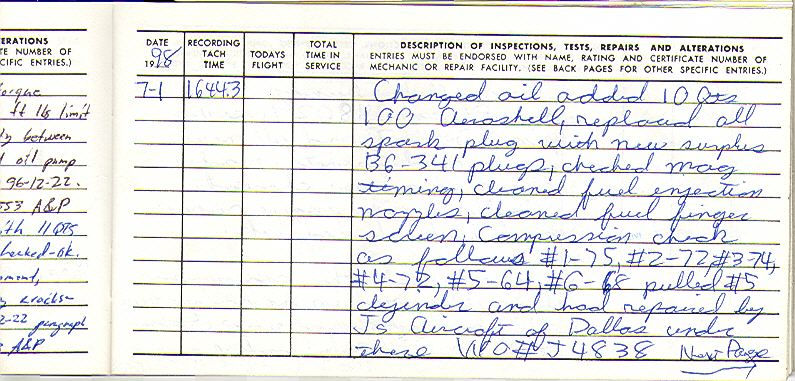 ERATIONS
TE NUMBER OF
CIFIC ENTRIES.)
torque
ft lb limit
ty between
oil pump
96-12-22.
553 A&P
ith 11 QTS
hecked-ok.
ment,
cracks-
2-22 paragraph
A&P
DATE
1998
RECORDING
TACH
TIME
TODAYS
FLIGHT
TOTAL
TIME IN
SERVICE
DESCRIPTION OF INSPECTIONS, TESTS, REPAIRS AND ALTERATIONS
ENTRIES MUST BE ENDORSED WITH NAME, RATING AND CERTIFICATE NUMBER OF
MECHANIC OR REPAIR FACILITY. (SEE BACK PAGES FOR OTHER SPECIFIC ENTRIES.)
7-1 1644.3 Changed oil added 10 qts
100 Aeroshell, replaced all
spark plug with new surplus
B6-341 plugs, checked mag
timing, cleaned fuel enjection
nozzles, cleaned fuel finger
screen, Compression check
as follows #1-75, #2-72, #3-74,
#4-72, #5-64, #6-68 pulled #5
clyinder and had repaired by
Js Aircraft of Dallas under
there W/O # J4838 Next Page